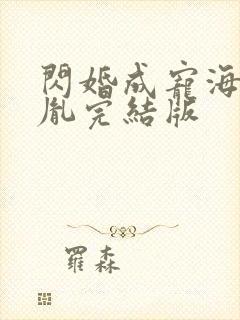 閃婚成寵海
胤完結版
羅森